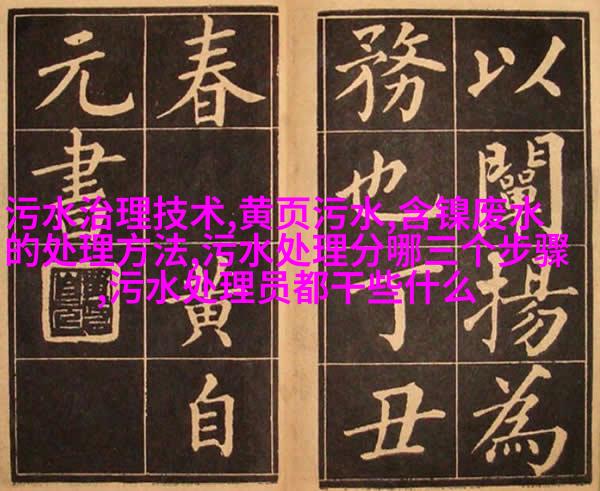 以闡揚為
務也丁丑
春黃自
元書
污水治理技术,黄页污水,含镍废水
的处理方法,污水处理分哪三个步骤
,污水处理员都干些什么